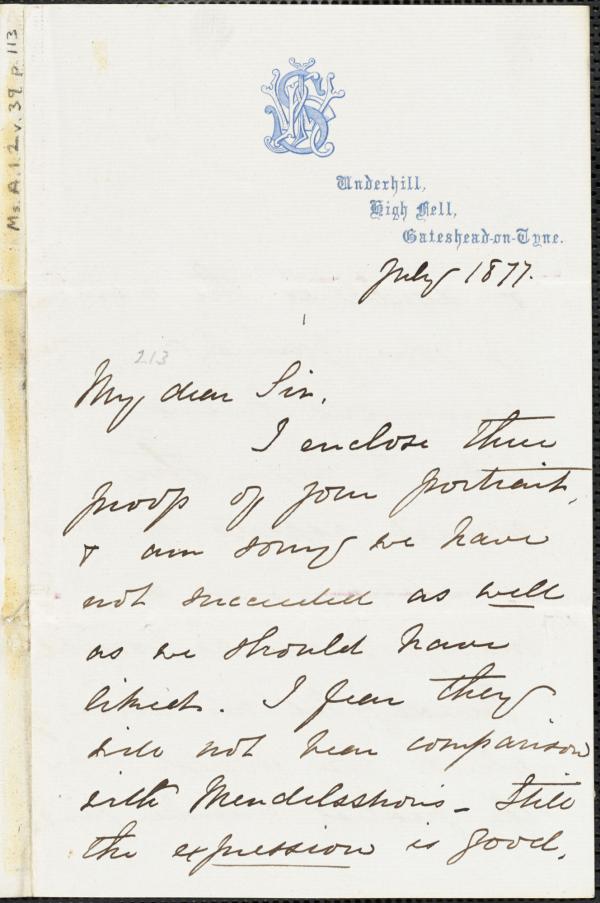 Ms. A. 1. 2 v. 39 p. 113
Underhill,
High Fell,
Gateshead-on-Tyne.
July 1877.
213
My dear Sir,
I enclose three
proofs of your portrait,
& am sorry we have
not succeeded as well
as we should have
liked. I fear they
will not bear comparison
with Mendelsshon's - Still
the expression is good.